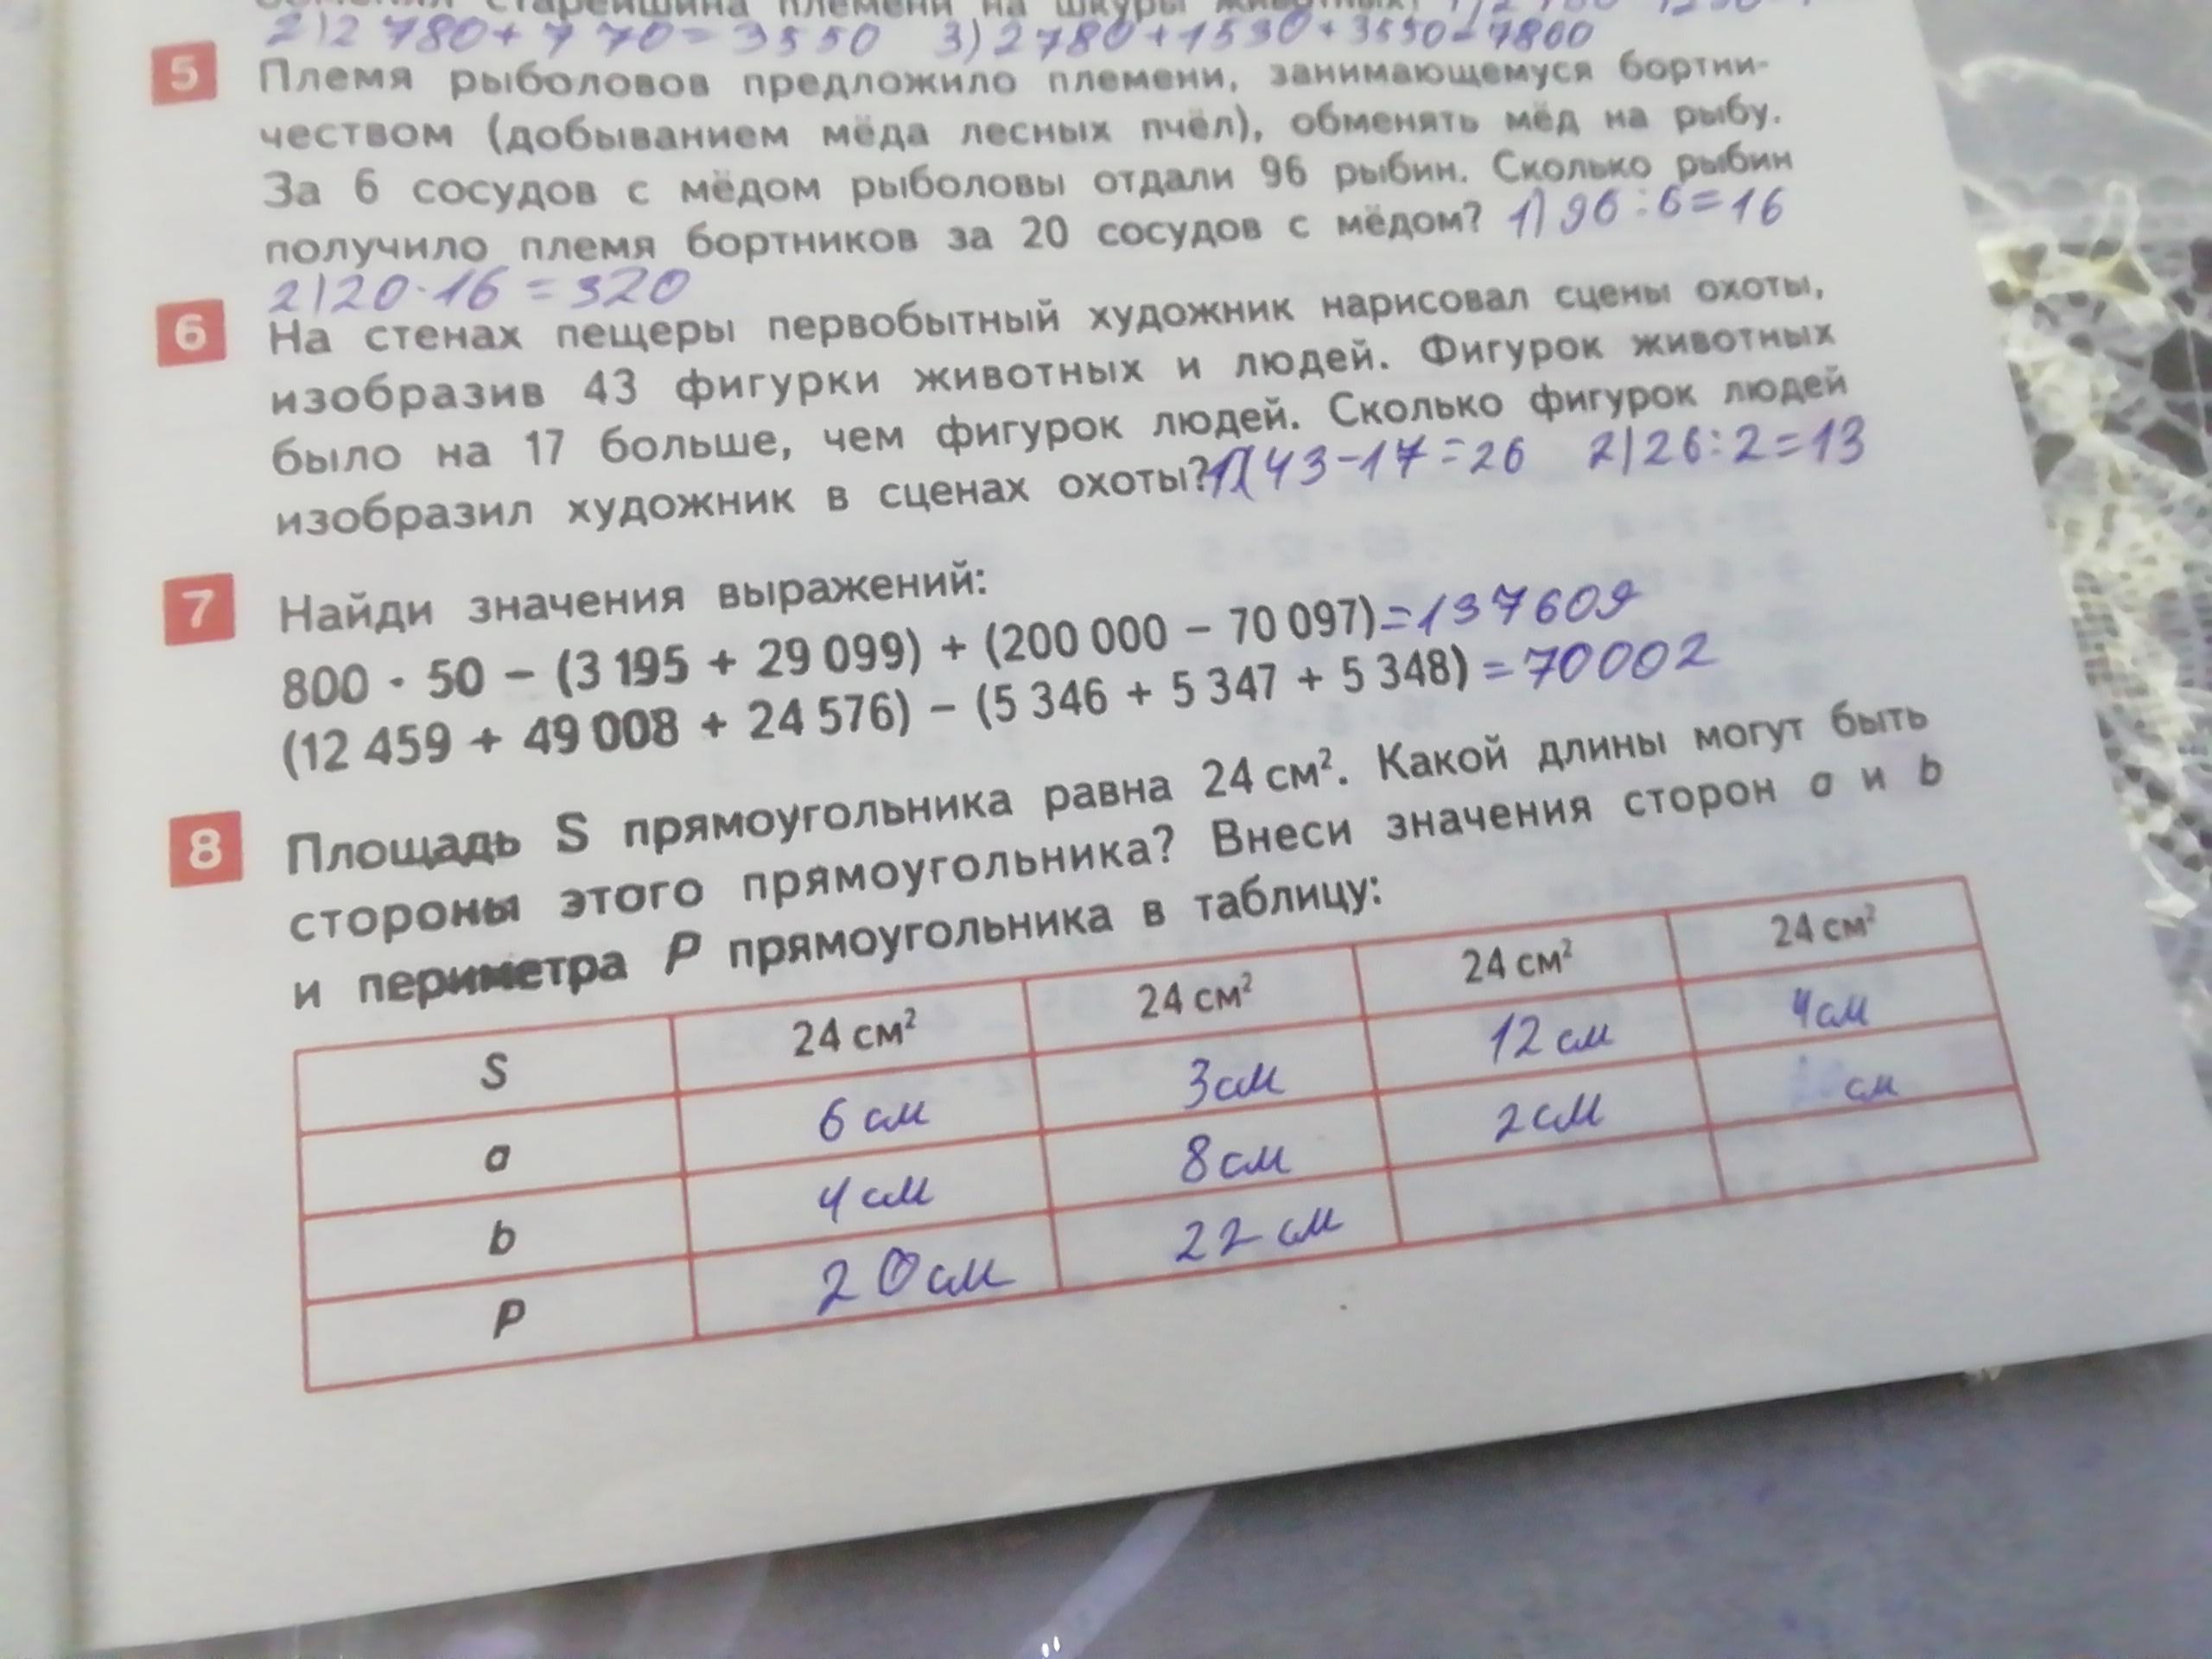 старейшина племени на шкуры
2) 2 780 + 770 = 3550 3) 2780 + 1530 + 3550 = 7860
5 Племя рыболовов предложило племени, занимающемуся бортни-
чеством (добыванием мёда лесных пчёл), обменять мёд на рыбу.
За 6 сосудов с мёдом рыболовы отдали 96 рыбин. Сколько рыбин
получило племя бортников за 20 сосудов с мёдом? 1) 96 : 6 = 16
2) 20 · 16 = 320
6 На стенах пещеры первобытный художник нарисовал сцены охоты,
изобразив 43 фигурки животных и людей. Фигурок животных
было на 17 больше, чем фигурок людей. Сколько фигурок людей
изобразил художник в сценах охоты? 1) 43 - 17 = 26 2) 26 : 2 = 13
7 Найди значения выражений:
800 · 50 – (3 195 + 29 099) + (200 000 – 70 097) = 137609
(12 459 + 49 008 + 24 576) – (5 346 + 5 347 + 5 348) = 70002
8 Площадь S прямоугольника равна 24 см². Какой длины могут быть
стороны этого прямоугольника? Внеси значения сторон a и b
и периметра P прямоугольника в таблицу:
S 24 см² 24 см² 24 см² 24 см²
a 6 см 3 см 12 см 4 см
b 4 см 8 см 2 см см
P 20 см 22 см